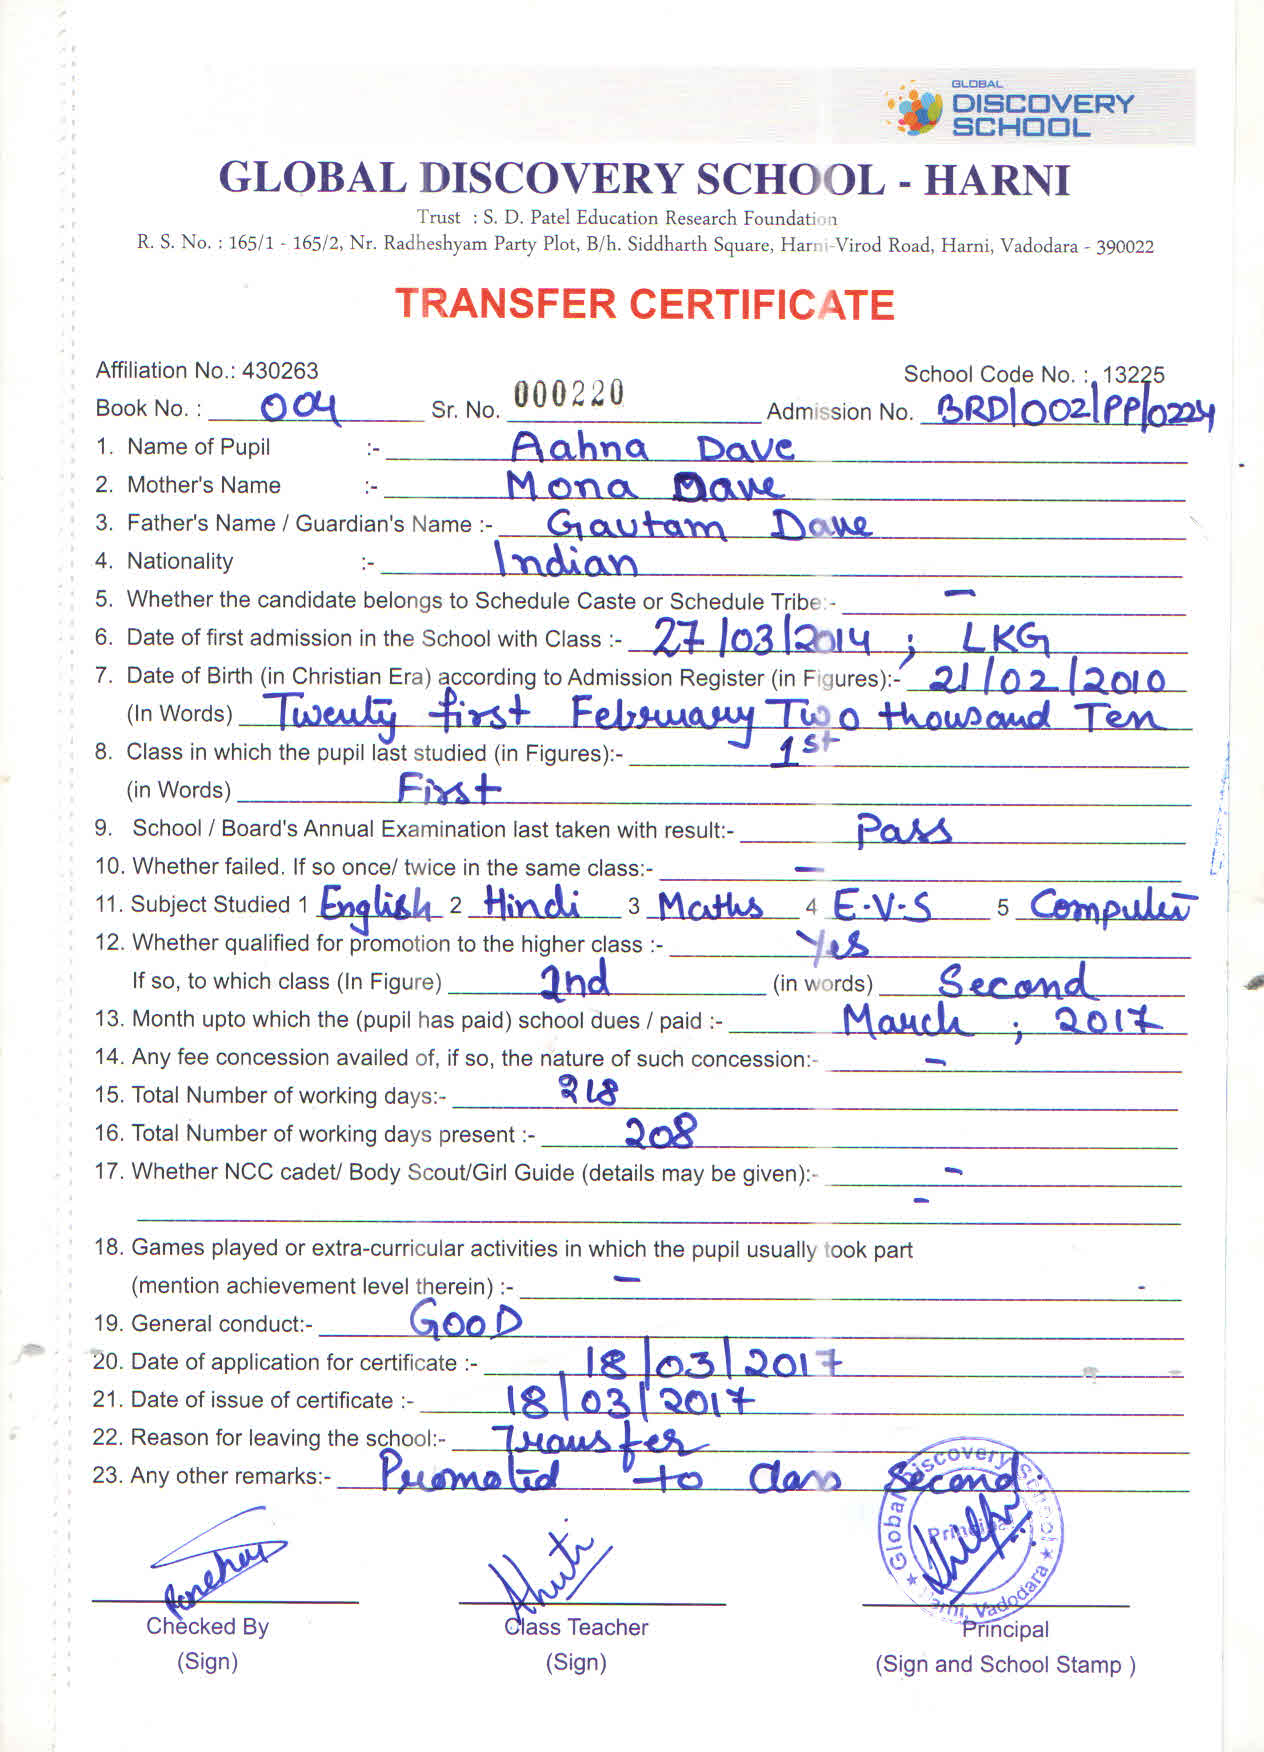 GLOBAL
DISCOVERY
SCHOOL
GLOBAL DISCOVERY SCHOOL - HARNI
Trust : S. D. Patel Education Research Foundation
R. S. No. : 165/1 - 165/2, Nr. Radheshyam Party Plot, B/h. Siddharth Square, Harni-Virod Road, Harni, Vadodara - 390022
TRANSFER CERTIFICATE
Affiliation No.: 430263 School Code No. : 13225
Book No. : 004 Sr. No. 000220 Admission No. BRD/002/PP/0224
1. Name of Pupil :- Aahna Dave
2. Mother's Name :- Mona Dave
3. Father's Name / Guardian's Name :- Gautam Dave
4. Nationality :- Indian
5. Whether the candidate belongs to Schedule Caste or Schedule Tribe:- –
6. Date of first admission in the School with Class :- 27/03/2014 ; LKG
7. Date of Birth (in Christian Era) according to Admission Register (in Figures):- 21/02/2010
(In Words) Twenty first February Two thousand Ten
8. Class in which the pupil last studied (in Figures):- 1st
(in Words) First
9. School / Board's Annual Examination last taken with result:- Pass
10. Whether failed. If so once/ twice in the same class:- –
11. Subject Studied 1 English 2 Hindi 3 Maths 4 E.V.S 5 Computer
12. Whether qualified for promotion to the higher class :- Yes
If so, to which class (In Figure) 2nd (in words) Second
13. Month upto which the (pupil has paid) school dues / paid :- March ; 2017
14. Any fee concession availed of, if so, the nature of such concession:- –
15. Total Number of working days:- 218
16. Total Number of working days present :- 208
17. Whether NCC cadet/ Body Scout/Girl Guide (details may be given):- –
–
18. Games played or extra-curricular activities in which the pupil usually took part
(mention achievement level therein) :- –
19. General conduct:- GOOD
20. Date of application for certificate :- 18/03/2017
21. Date of issue of certificate :- 18/03/2017
22. Reason for leaving the school:- Transfer
23. Any other remarks:- Promoted to class Second
Global Discovery School
Principal
★ Harni, Vadodara ★
Checked By Class Teacher Principal
(Sign) (Sign) (Sign and School Stamp )